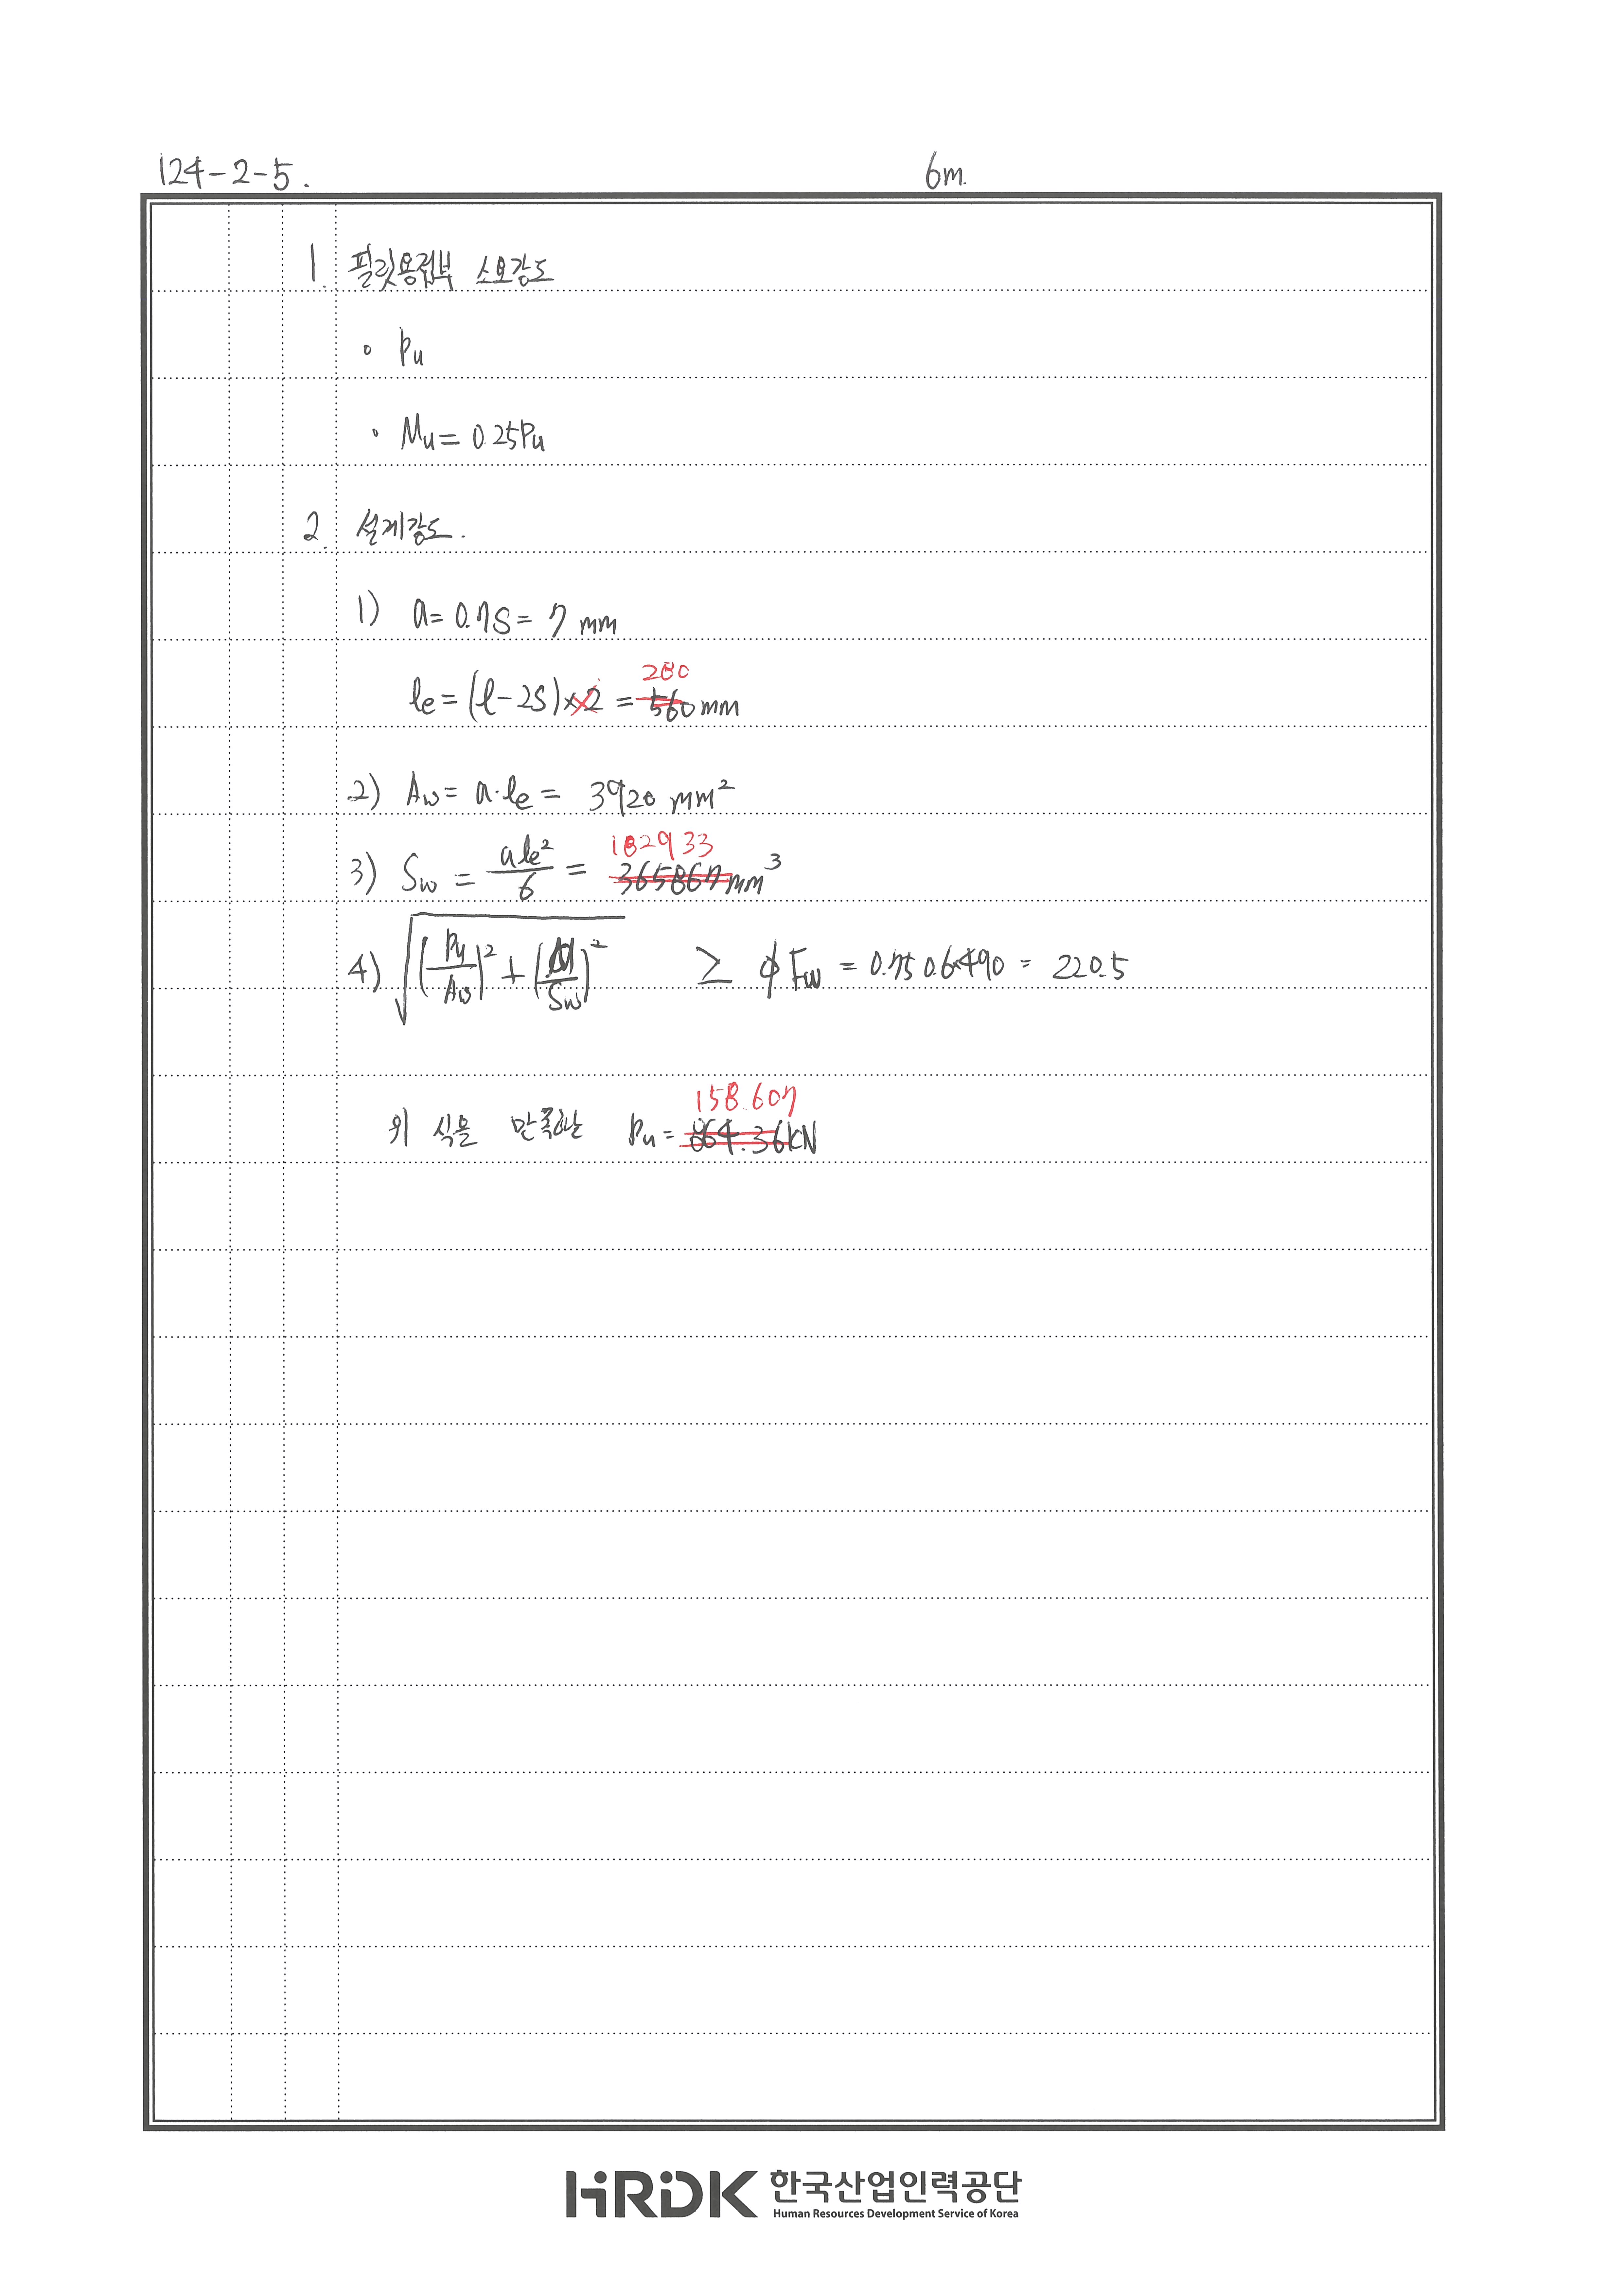 124-2-5.
6m.
1. 필릿용접부 소요강도
∘ Pu
∘ Mu = 0.25Pu
2. 설계강도.
1) a = 0.7S = 7 mm
280
le = (l-2S)×2 = 560mm
2) Aw = a·le = 3920 mm²
182933
3) Sw = ale²/6 = 365867mm³
4) √((Pu/Aw)² + (M/Sw)²) ≥ φFw = 0.75 0.6×490 = 220.5
158.607
위 식을 만족하는 Pu = 864.36kN
HRDK 한국산업인력공단
Human Resources Development Service of Korea